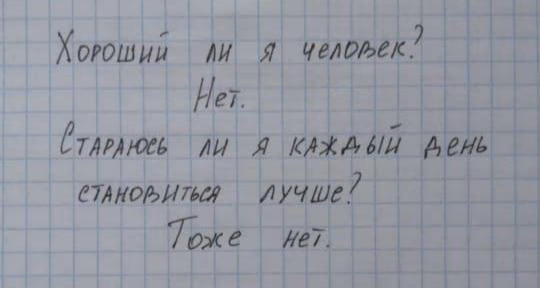 Хороший ли я человек?
Нет.
Стараюсь ли я каждый день
становиться лучше?
Тоже нет.